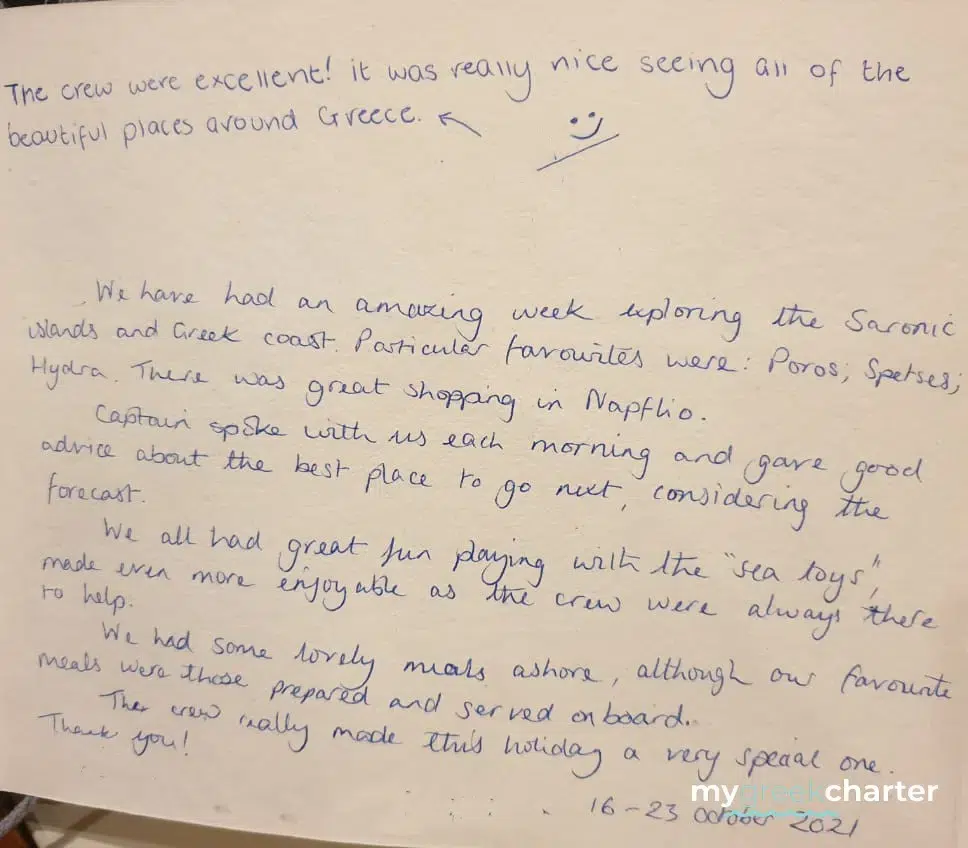 The crew were excellent! it was really nice seeing all of the
beautiful places around Greece.
We have had an amazing week exploring the Saronic
islands and Greek coast. Particular favourites were: Poros; Spetses;
Hydra. There was great shopping in Napflio.
Captain spoke with us each morning and gave good
advice about the best place to go next, considering the
forecast.
We all had great fun playing with the "sea toys",
made even more enjoyable as the crew were always there
to help.
We had some lovely meals ashore, although our favourite
meals were those prepared and served onboard.
Ther crew really made this holiday a very special one.
Thank you!
mygreekcharter
16-23 October 2021